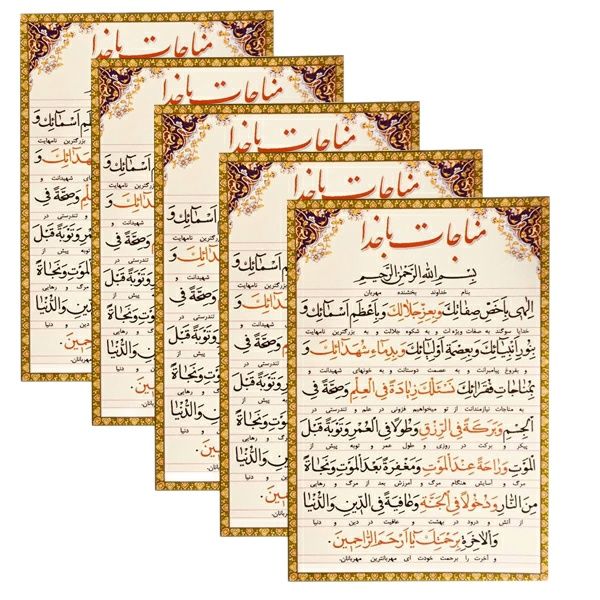 مناجات با خدا
بِسْمِ اللهِ الرَّحْمٰنِ الرَّحيمِ
بنام خداوند بخشنده مهربان
اِلهى بِاَخَصِّ صِفاتِكَ وَبِعِزِّ جَلالِكَ وَبِاَعْظَمِ اَسْمائِكَ وَ
خدایا سوگند به صفات ویژه ات و به شکوه جلالت و به بزرگترین نامهایت
بِنُورِ اَنْبِيائِكَ وَبِعِصْمَةِ اَوْلِيائِكَ وَبِدِماءِ شُهَدائِكَ وَ
و بفروغ پیامبرانت و به عصمت دوستانت و به خونهای شهیدانت و
بِمُناجاتِ فُقَرائِكَ نَسْئَلُكَ زِيادَةً فِى الْعِلْمِ وَصِحَّةً فِى
به مناجات نیازمندانت از تو میخواهیم فزونی در علم و تندرستی در
الْجِسْمِ وَبَرَكَةً فِى الرِّزْقِ وَطُولاً فِى الْعُمْرِ وَتَوْبَةً قَبْلَ
پیکر و برکت در روزی و طول عمر و توبه پیش از
الْمَوْتِ وَراحَةً عِنْدَ الْمَوْتِ وَمَغْفِرَةً بَعْدَ الْمَوْتِ وَنَجاةً
مرگ و آسایش هنگام مرگ و آمرزش بعد از مرگ و رهایی
مِنَ النّارِ وَدُخُولاً فِى الْجَنَّةِ وَعافِيَةً فِى الدّينِ وَالدُّنْيا
از آتش و درود در بهشت و عافیت در دین و دنیا
وَالْاخِرَةِ بِرَحْمَتِكَ يا اَرْحَمَ الرّاحِمينَ.
و آخرت را برحمت خودت ای مهربانترین مهربانان.
مناجات با خدا
مناجات با خدا
مناجات با خدا
مناجات با خدا